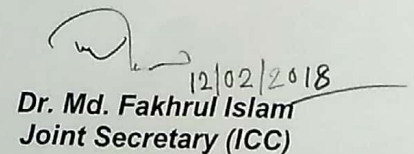 12/02/2018
Dr. Md. Fakhrul Islam
Joint Secretary (ICC)